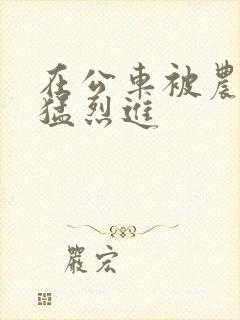 在公車被農
猛烈進
嚴宏